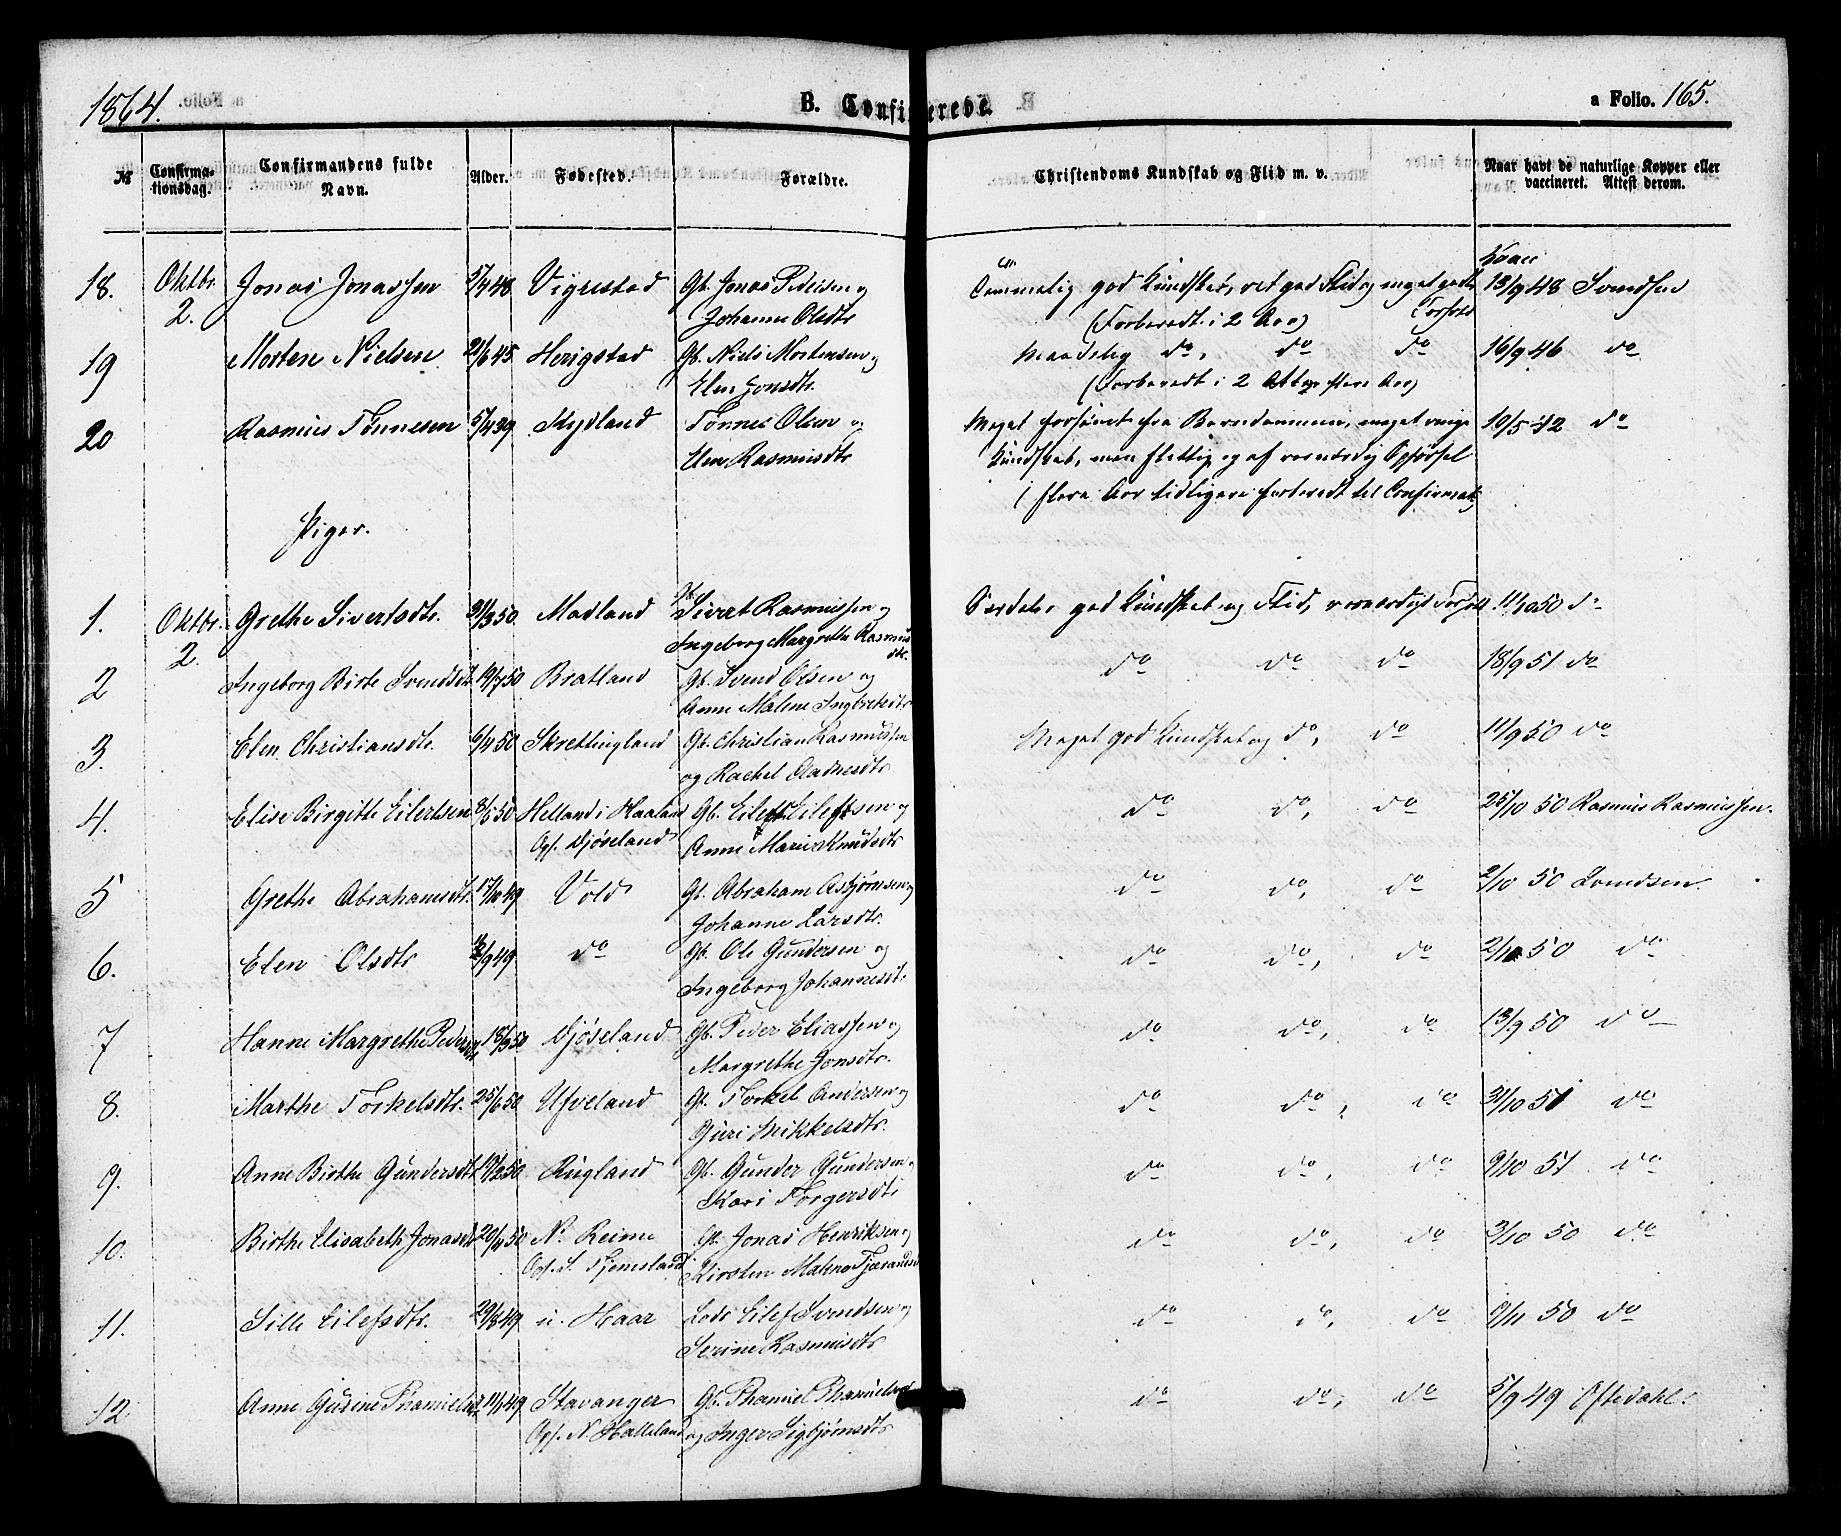 1864. B. Confirmerede. a Folio. 165.
№ Confirma-tionsdag. Confirmandens fulde Navn. Alder. Fødested. Forældre. Christendoms Kundskab og Flid m. v. Naar havt de naturlige Kopper eller vaccineret. Attest derom.
18. Oktbr. 2. Jonas Jonassen 5/4 48 Vigrestad Gb. Jonas Pedersen og Temmelig god Kundskab, ret god Flid og meget godt Forhold 13/9 48 Svendsen
Johanne Olsdtr (Forberedt i 2 Aar)
19 Morten Nielsen 21/6 45 Herigstad Gb. Niels Mortensen og Maadelig do, do do 16/9 46 do
Elen Jonsdtr. (Forberedt i 2 flere Aar)
20 Rasmus Tønnesen 5/4 39 Kydland Tønnes Olsen og Meget forsømt fra Barndommen, meget ringe 10/5 42 do
Elen Rasmusdtr Kundskab, men flittig og af værdig Opførsel
(flere Aar tidligere forberedt til Confirmat.)
Piger.
1. Oktbr. 2. Grethe Sivertsdtr. 31/3 50. Madland Sivert Rasmussen og Særdeles god Kundskab og Flid, 11/10 50 do
Ingeborg Margrethe Rasmusdtr.
2 Ingeborg Birte Svendsdt. 19/7 50 Bratland Gb. Svend Olsen og do do do 18/9 51 do
Anne Malene Ingbretsdtr
3. Elen Christiansdtr. 6/4 50 Skrettingland Gb. Christian Rasmussen Meget god Kundskab og do, do 11/9 50 do
og Rachel
4. Elise Birgitte Eilertsen 8/5 50 Helland i Haaland Gb. Eilert Eilertsen og do do, do 25/10 50 Rasmus Rasmussen.
Opf. Djøseland Anne Marie Knudsdtr
5 Grethe Abrahamsdtr. 17/10 49 Vold Gb. Abraham Asbjørnsen og do do, do 2/10 50 Svendsen.
Johanne Larsdtr.
6. Elen Olsdtr /9 49 do Gb. Ole Gundersen og do do, do 2/10 50 do
Ingeborg Johannesdtr.
7 Hanne Margrethe Pedersdt. 18/9 50 Djøseland Gb. Peder Eliassen og do do, do 13/9 50 do
Margrethe Jonsdtr.
8. Marthe Torkelsdtr. 25/6 50 Ufveland Gb. Torkel Andersen og do do, do 2/10 51 do
Guri Mikkelsdtr.
9. Anne Birthe Gundersdt. 19/2 50 Rugland Gb. Gunder Gundersen og do do, do 9/10 51 do
Kari Torgersdtr
10. Birthe Elisabeth Jonasdt. 20/4 50 N. Reime Gb. Jonas Henriksen og do do, do 2/10 50 do
Opf. S. Tjemsland Kirsten Malene Tjærandsdtr
11. Sille Eilefsdtr. 29/8 49 u. Haar Lods Eilef Svendsen og do do, do 9/11 50 do
Serine Rasmusdtr
12. Anne Gurine Thamielsdt. 11/1 49 Stavanger Gb. Thamiel Thamielsen do do, do 5/9 49 Oftedahl.
Opf. N. Hatteland og Inger Sigbjørnsdtr